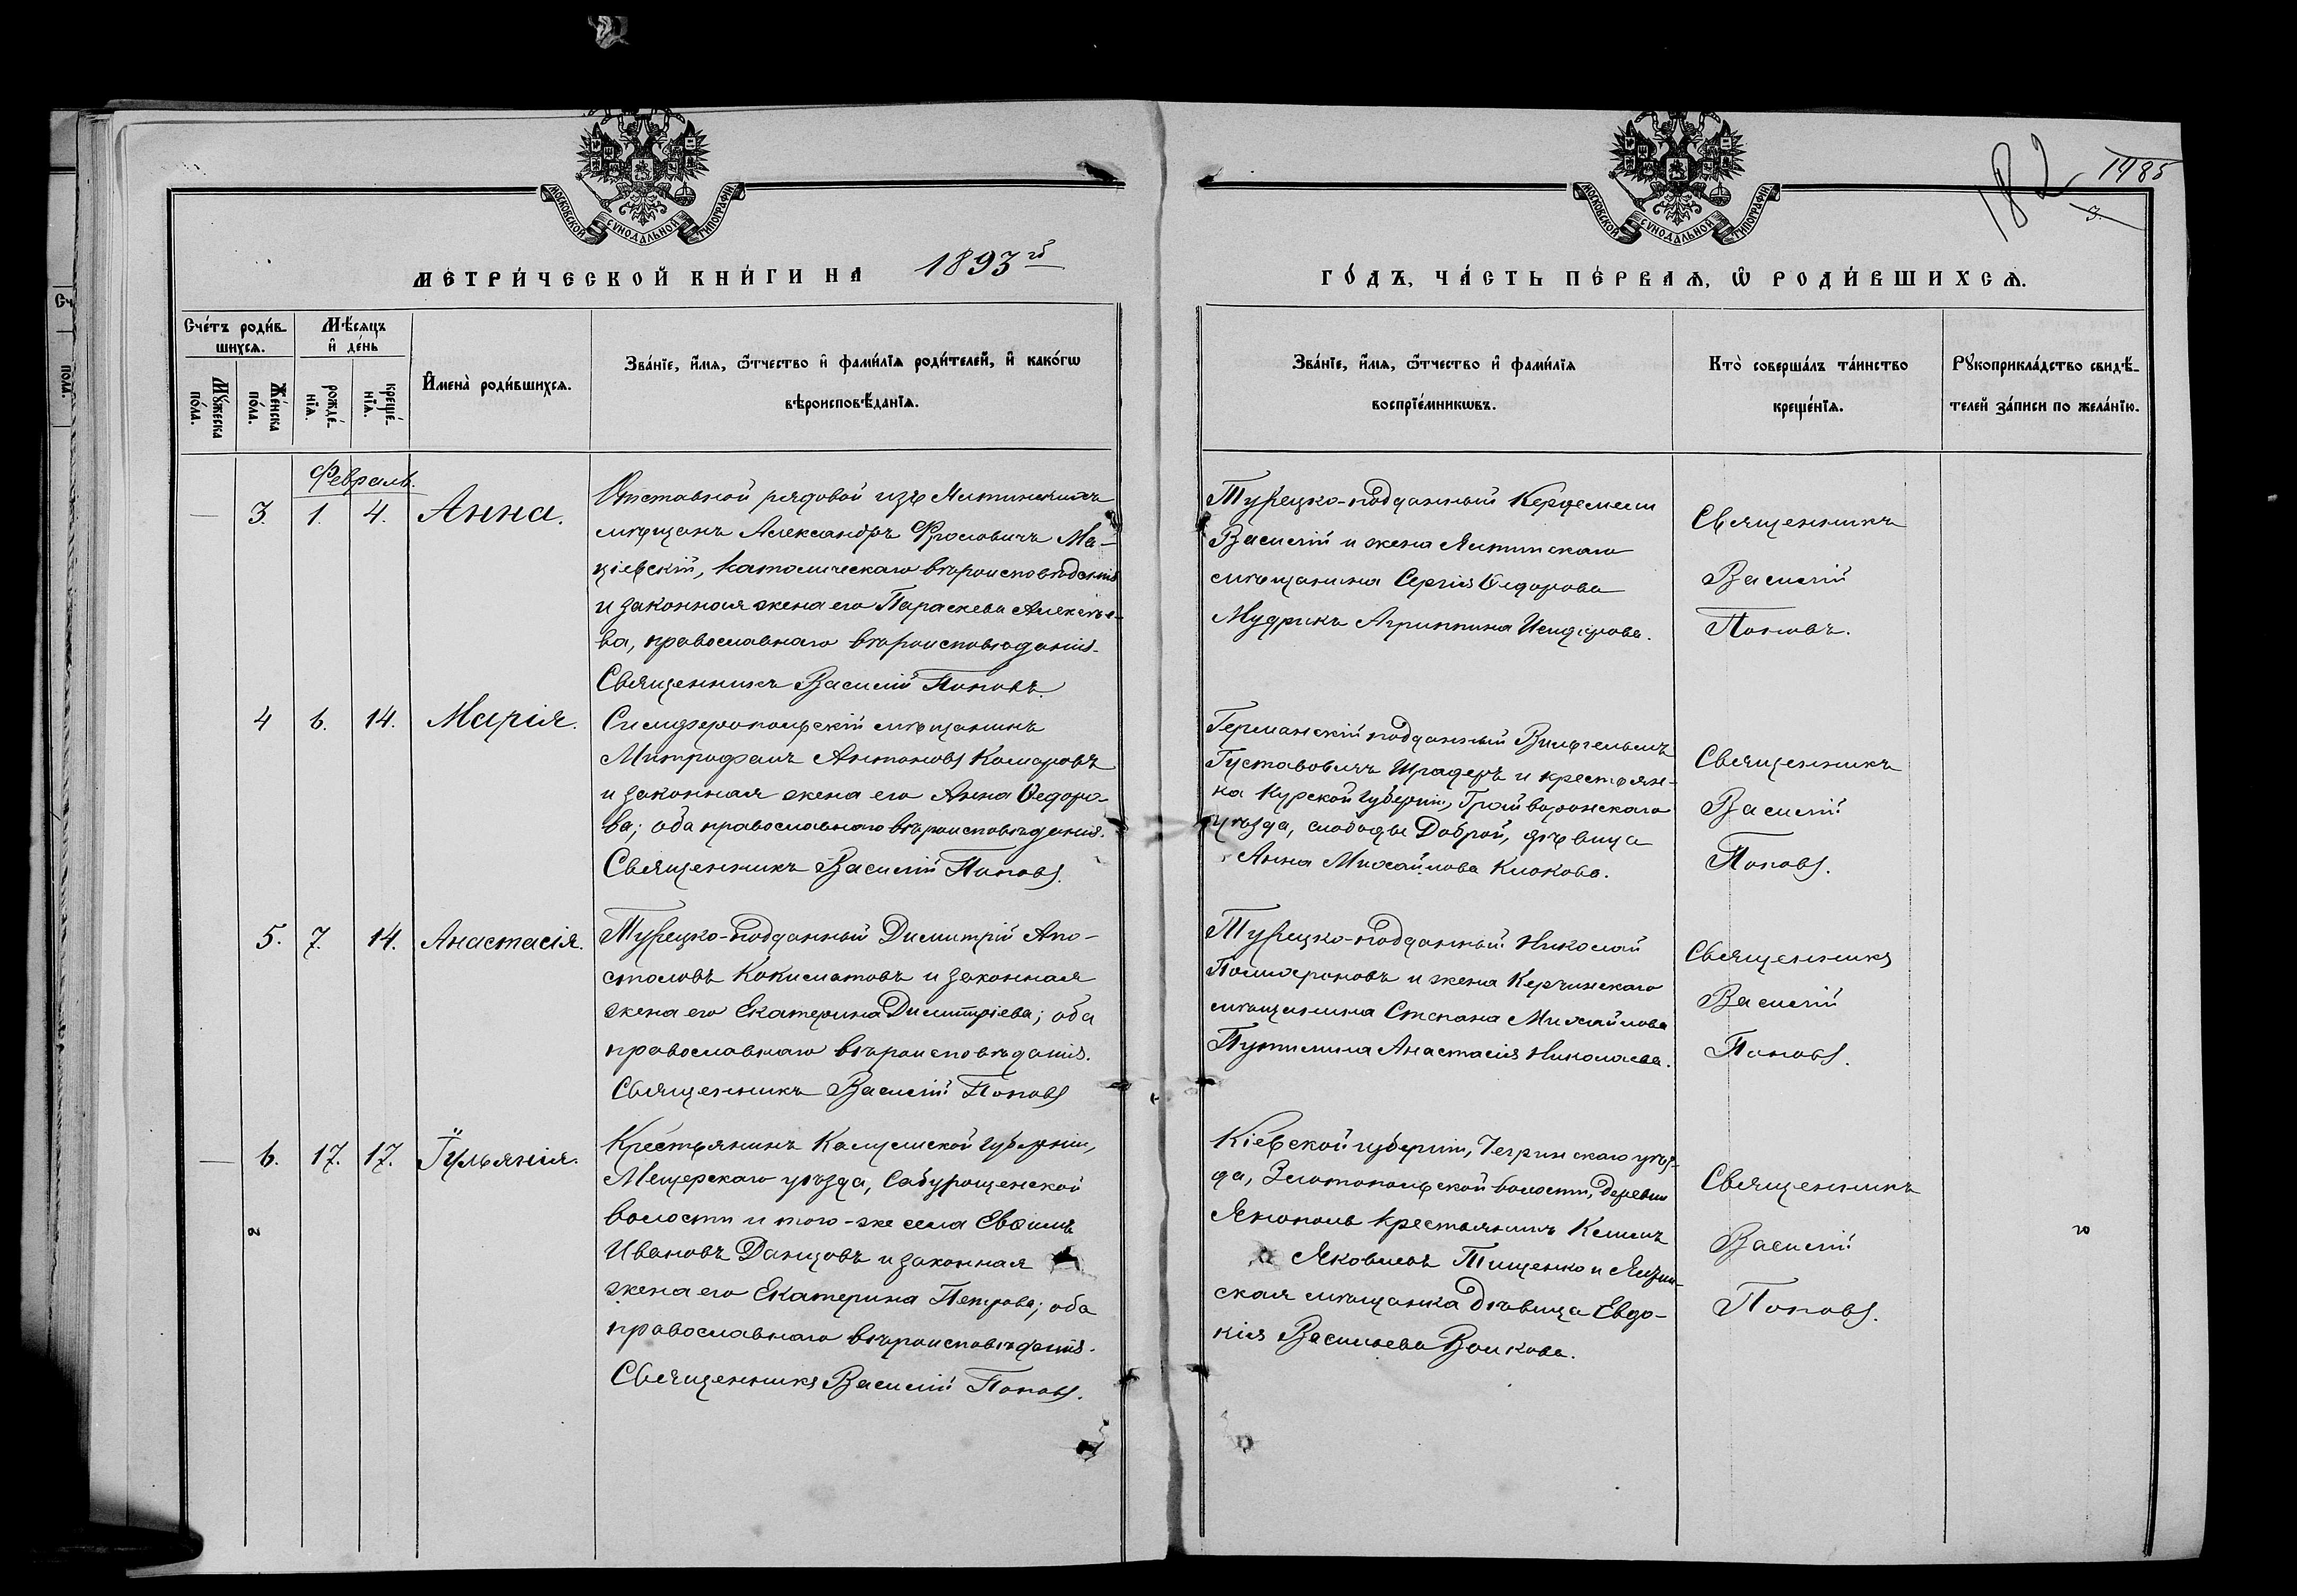 МОСКОВСКОЙ СУНОДАЛЬНОЙ ТИПОГРАФІИ
МОСКОВСКОЙ СУНОДАЛЬНОЙ ТИПОГРАФІИ
182 1985
3.
МЕТРИ́ЧЕСКОЙ КНИ́ГИ НА 1893 й
ГО́ДЪ, ЧА́СТЬ ПЕ́РВАѦ, Ѽ РОДИ́ВШИХСѦ.
Сче́тъ роди́в-
шихсѧ.
Мꙋжеска по́ла.
Же́нска по́ла.
Мѣ́сѧцъ
и҆ де́нь
рожде́-
нїѧ.
креще́-
нїѧ.
И҆мена̀ роди́вшихсѧ.
Зва́нїе, и҆́мѧ, ѻ҆́тчество и҆ фами́лїѧ роди́телей, и҆ како́гѡ
вѣроисповѣ́данїѧ.
Зва́нїе, и҆́мѧ, ѻ҆́тчество и҆ фами́лїѧ
воспрїе́мникѡвъ.
Кто̀ соверша́лъ та́инство
креще́нїѧ.
Рꙋкоприкла́дство свидѣ́-
телей за́писи по жела́нїю.
Февраль.
— 3. 1. 4. Анна.
Отставной рядовой изъ Ялтинскихъ
мѣщанъ Александръ Фроловичъ Ма-
ціевскій, католическаго вѣроисповѣданія
и законная жена его Параскева Алексѣе-
ва, православнаго вѣроисповѣданія.
Священникъ Василій Поповъ.
Турецко-подданный
Василій и жена Ялтинскаго
мѣщанина Сергія Ѳедорова
Мудрикъ Агриппина Исидорова.
Священникъ
Василій
Поповъ.
4 6. 14. Марія.
Симферопольскій мѣщанинъ
Митрофанъ Антоновъ Комаровъ
и законная жена его Анна Ѳедоро-
ва; оба православнаго вѣроисповѣданія.
Священникъ Василій Поповъ.
Германскій подданный Вильгельмъ
Густавовичъ Шрадеръ и крестьян-
ка Курской губерніи, Грайворонскаго
уѣзда, слободы Доброй, дѣвица
Анна Михайлова Клокова.
Священникъ
Василій
Поповъ.
5. 7. 14. Анастасія.
Турецко-подданный Димитрій Апо-
столовъ и законная
жена его Екатерина Димитріева; оба
православнаго вѣроисповѣданія.
Священникъ Василій Поповъ
Турецко-подданный Николай
и жена Керчинскаго
мѣщанина Степана Михайлова
Путилина Анастасія Николаева.
Священникъ
Василій
Поповъ.
— 6. 17. 17. Іульянія.
Крестьянинъ Калужской губерніи,
Мещерскаго уѣзда, Сабурощенской
волости и того-же села Евѳимъ
Ивановъ Данцовъ и законная
жена его Екатерина Петрова; оба
православнаго вѣроисповѣданія.
Священникъ Василій Поповъ.
Кіевской губерніи, Чегринскаго уѣз-
да, Златопольской волости, деревни
Янополь крестьянинъ Климъ
Яковлевъ Тищенко и Ялтин-
ская мѣщанка дѣвица Евдо-
кія Васильева Волкова.
Священникъ
Василій
Поповъ.